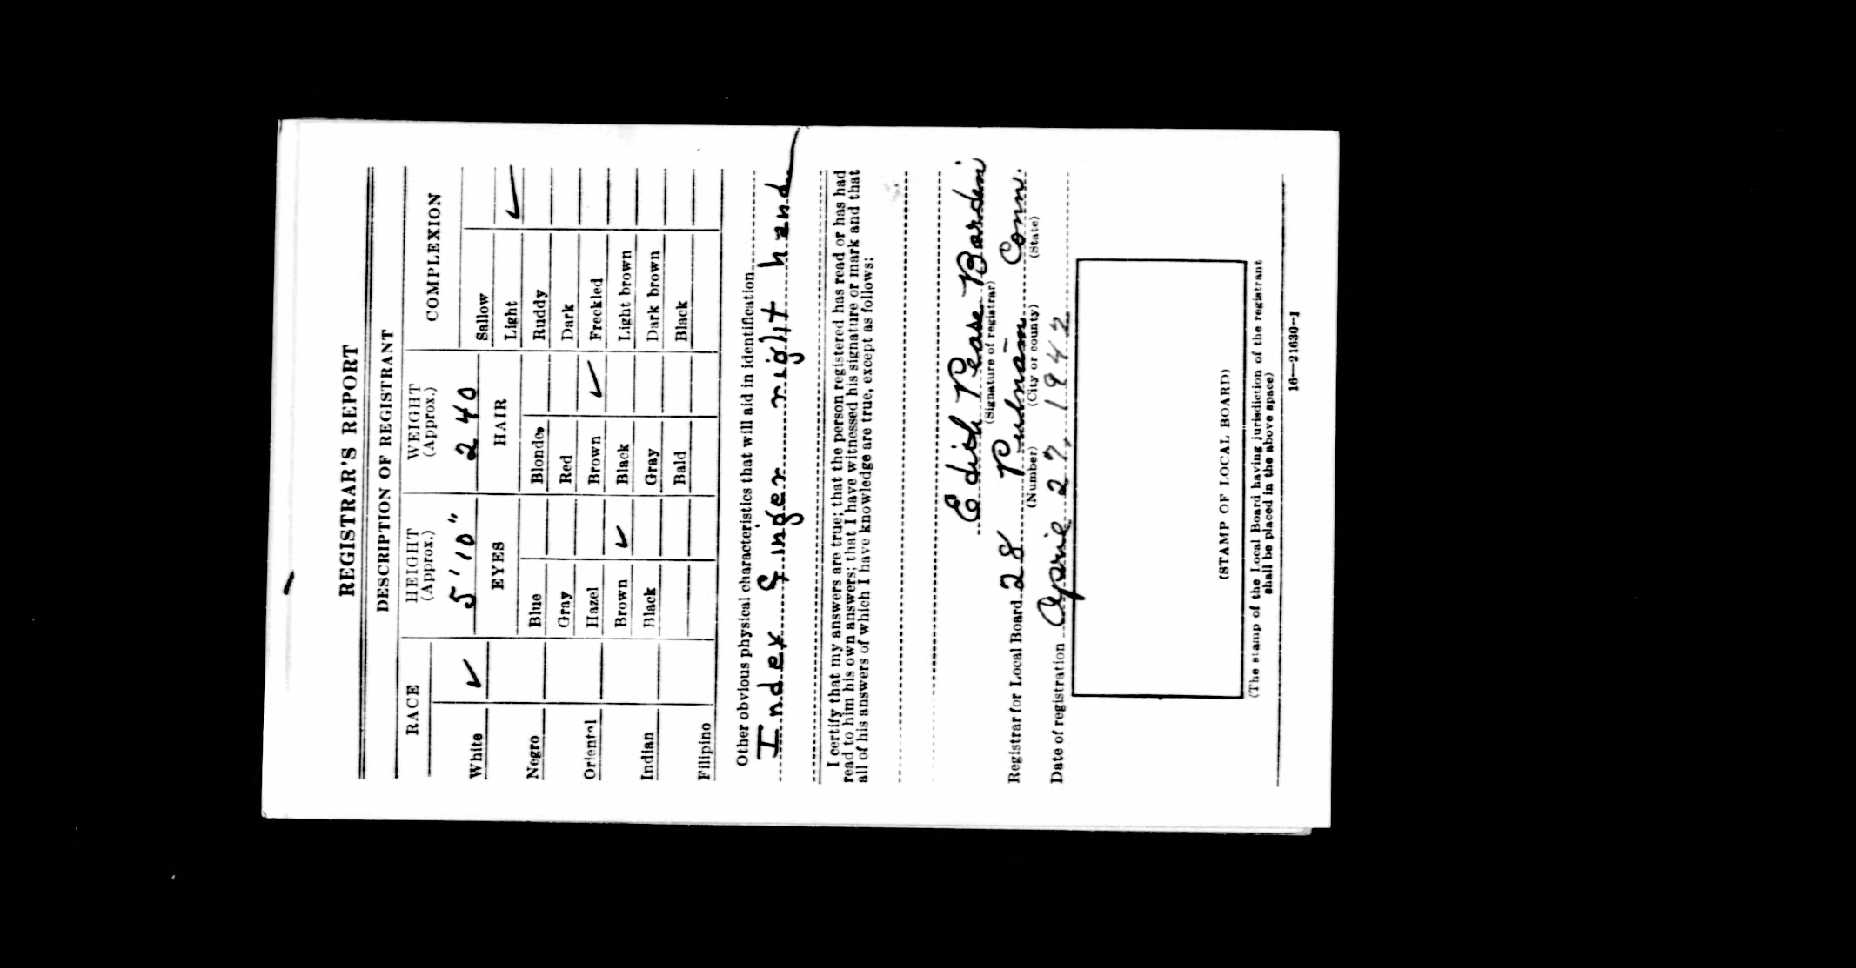 REGISTRAR'S REPORT
DESCRIPTION OF REGISTRANT
RACE
HEIGHT
(Approx.)
WEIGHT
(Approx.)
COMPLEXION
White ✓
5' 10"
240
EYES
HAIR
Sallow
Light ✓
Negro
Blue
Blonde
Ruddy
Gray
Red
Dark
Oriental
Hazel
Brown ✓
Freckled
Brown ✓
Black
Light brown
Indian
Black
Gray
Dark brown
Bald
Black
Filipino
Other obvious physical characteristics that will aid in identification
Index finger right hand
I certify that my answers are true; that the person registered has read or has had
read to him his own answers; that I have witnessed his signature or mark and that
all of his answers of which I have knowledge are true, except as follows:
Edith Pease Bardin
(Signature of registrar)
Registrar for Local Board 28 Putnam Conn.
(Number) (City or county) (State)
Date of registration April 27, 1942
(STAMP OF LOCAL BOARD)
(The stamp of the Local Board having jurisdiction of the registrant
shall be placed in the above space)
16—21630-1